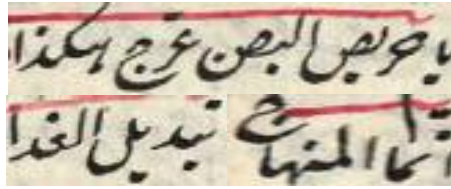 يا حريص البصن عرج هكذا
انما المنهاج تبديل الغذا